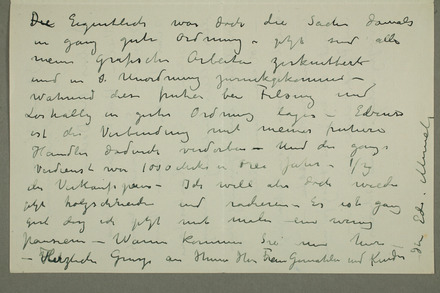 Die Eigentlich war doch die Sache damals
in ganz guter Ordnung – jetzt sind alle
meine grafischen Arbeiten zerknittert
und in Unordnung zurückgekommen –
während dess früher bei und
in guter Ordnung lagen – Ebenso
ist die Verbindung mit meinem früheren
Händler dadurch verdorben – Und der ganze
Verdienst war 1000 Mark in drei Jahren – 1/3
des Verkaufspreis – Ich will aber doch wieder
jetzt holzschneiden und radieren – Es ist ganz
gut dass ich jetzt nicht male – ein wenig
pausiere – Wann kommen Sie nun her –
– Herzliche Grüsse an Ihre Frau Gemahlin und Kinder
Ihr Edv. Munch